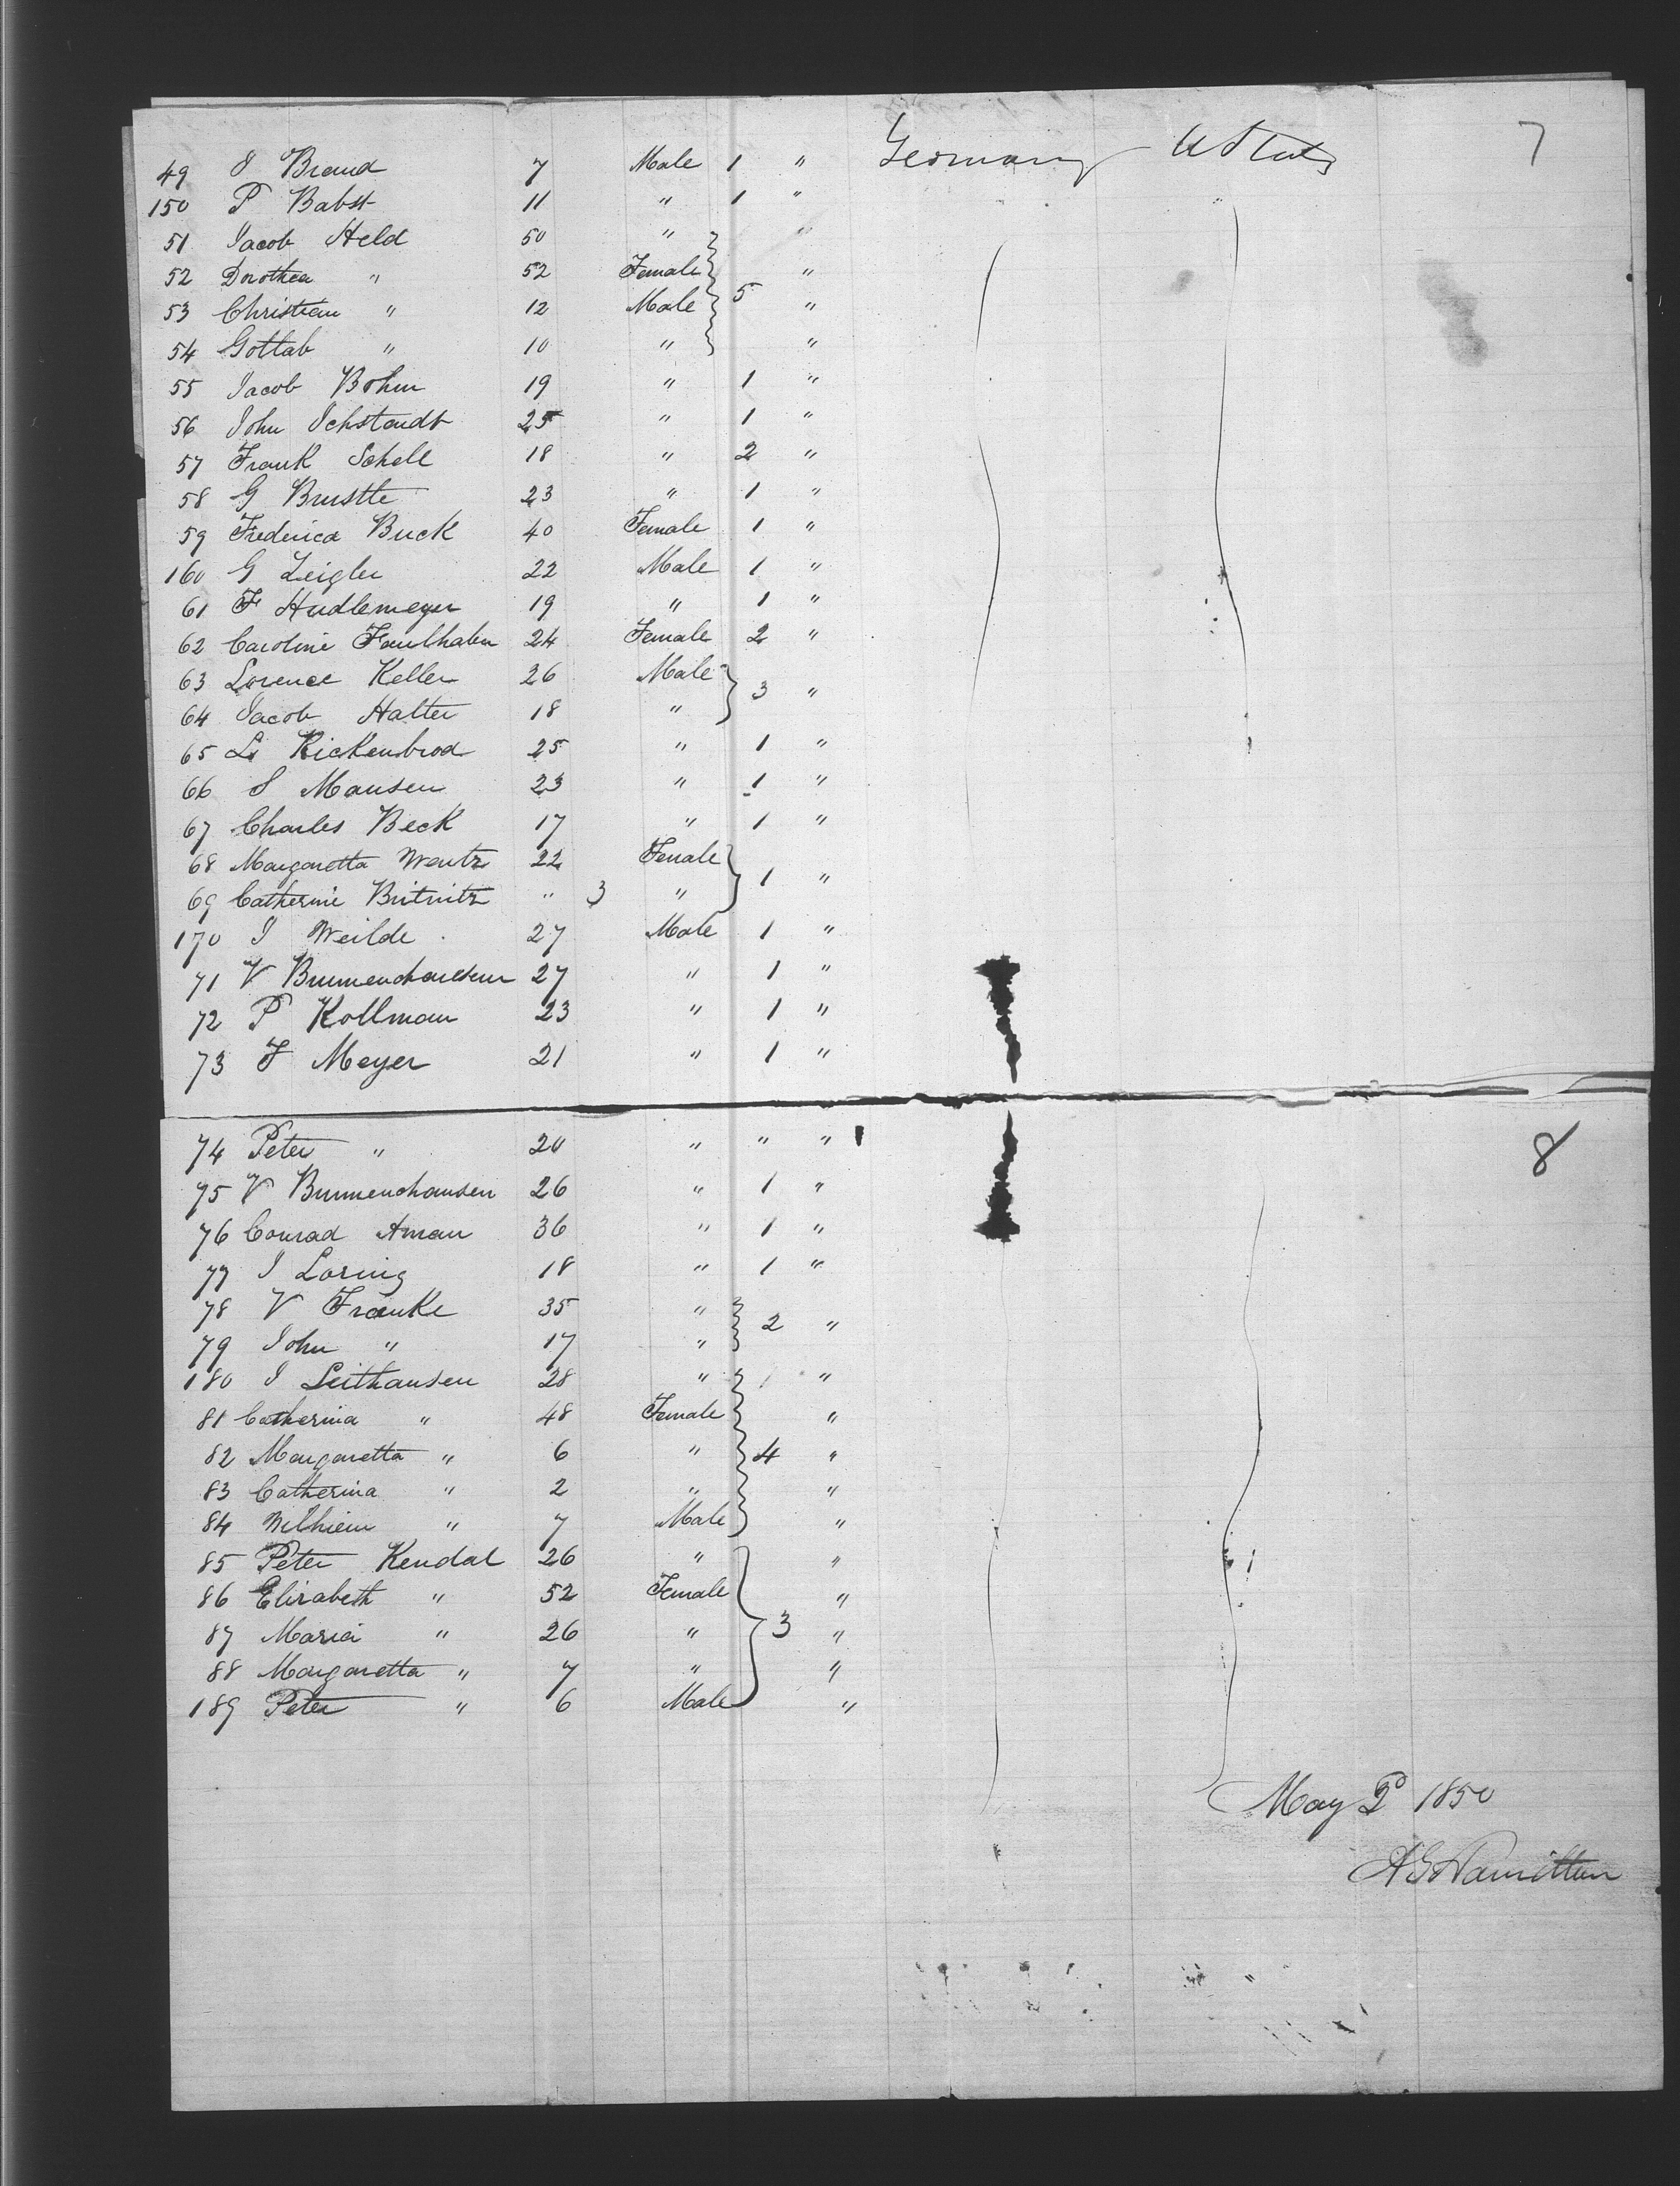 49 S Brand 7 Male 1 " Germany U States 7
150 P Babst 11 " 1 "
51 Jacob Held 50 " "
52 Dorothea " 52 Female "
53 Christian " 12 Male 5 "
54 Gottab " 10 " "
55 Jacob Bohm 19 " 1 "
56 John Ichstandt 25 " 1 "
57 Frank Schell 18 " 2 "
58 G Brustle 23 " 1 "
59 Frederica Buck 40 Female 1 "
160 G Zeigler 22 Male 1 "
61 F Hudlemeyer 19 " 1 "
62 Caroline Faulhaber 24 Female 2 "
63 Lorence Keller 26 Male 3 "
64 Jacob Halter 18 "
65 L Rickenbrod 25 " 1 "
66 S Mausen 23 " 1 "
67 Charles Beck 17 " 1 "
68 Margaretta Wentz 22 Female 1 "
69 Catherine Britnitz " 3 "
170 J Weilde 27 Male 1 "
71 V Brumenchausen 27 " 1 "
72 P Kollman 23 " 1 "
73 F Meyer 21 " 1 "
74 Peter " 20 " " " 8
75 V Brumenchausen 26 " 1 "
76 Conrad Aman 36 " 1 "
77 J Loring 18 " 1 "
78 V Franke 35 " 2 "
79 John " 17 "
180 J Leithausen 28 " "
81 Catherina " 48 Female "
82 Margaretta " 6 " 4 "
83 Catherina " 2 " "
84 Wilhiem " 7 Male "
85 Peter Kendal 26 " "
86 Elizabeth " 52 Female "
87 Maria " 26 " 3 "
88 Margaretta " 7 " "
189 Peter " 6 Male "
May 2d 1850
A G Hamilton